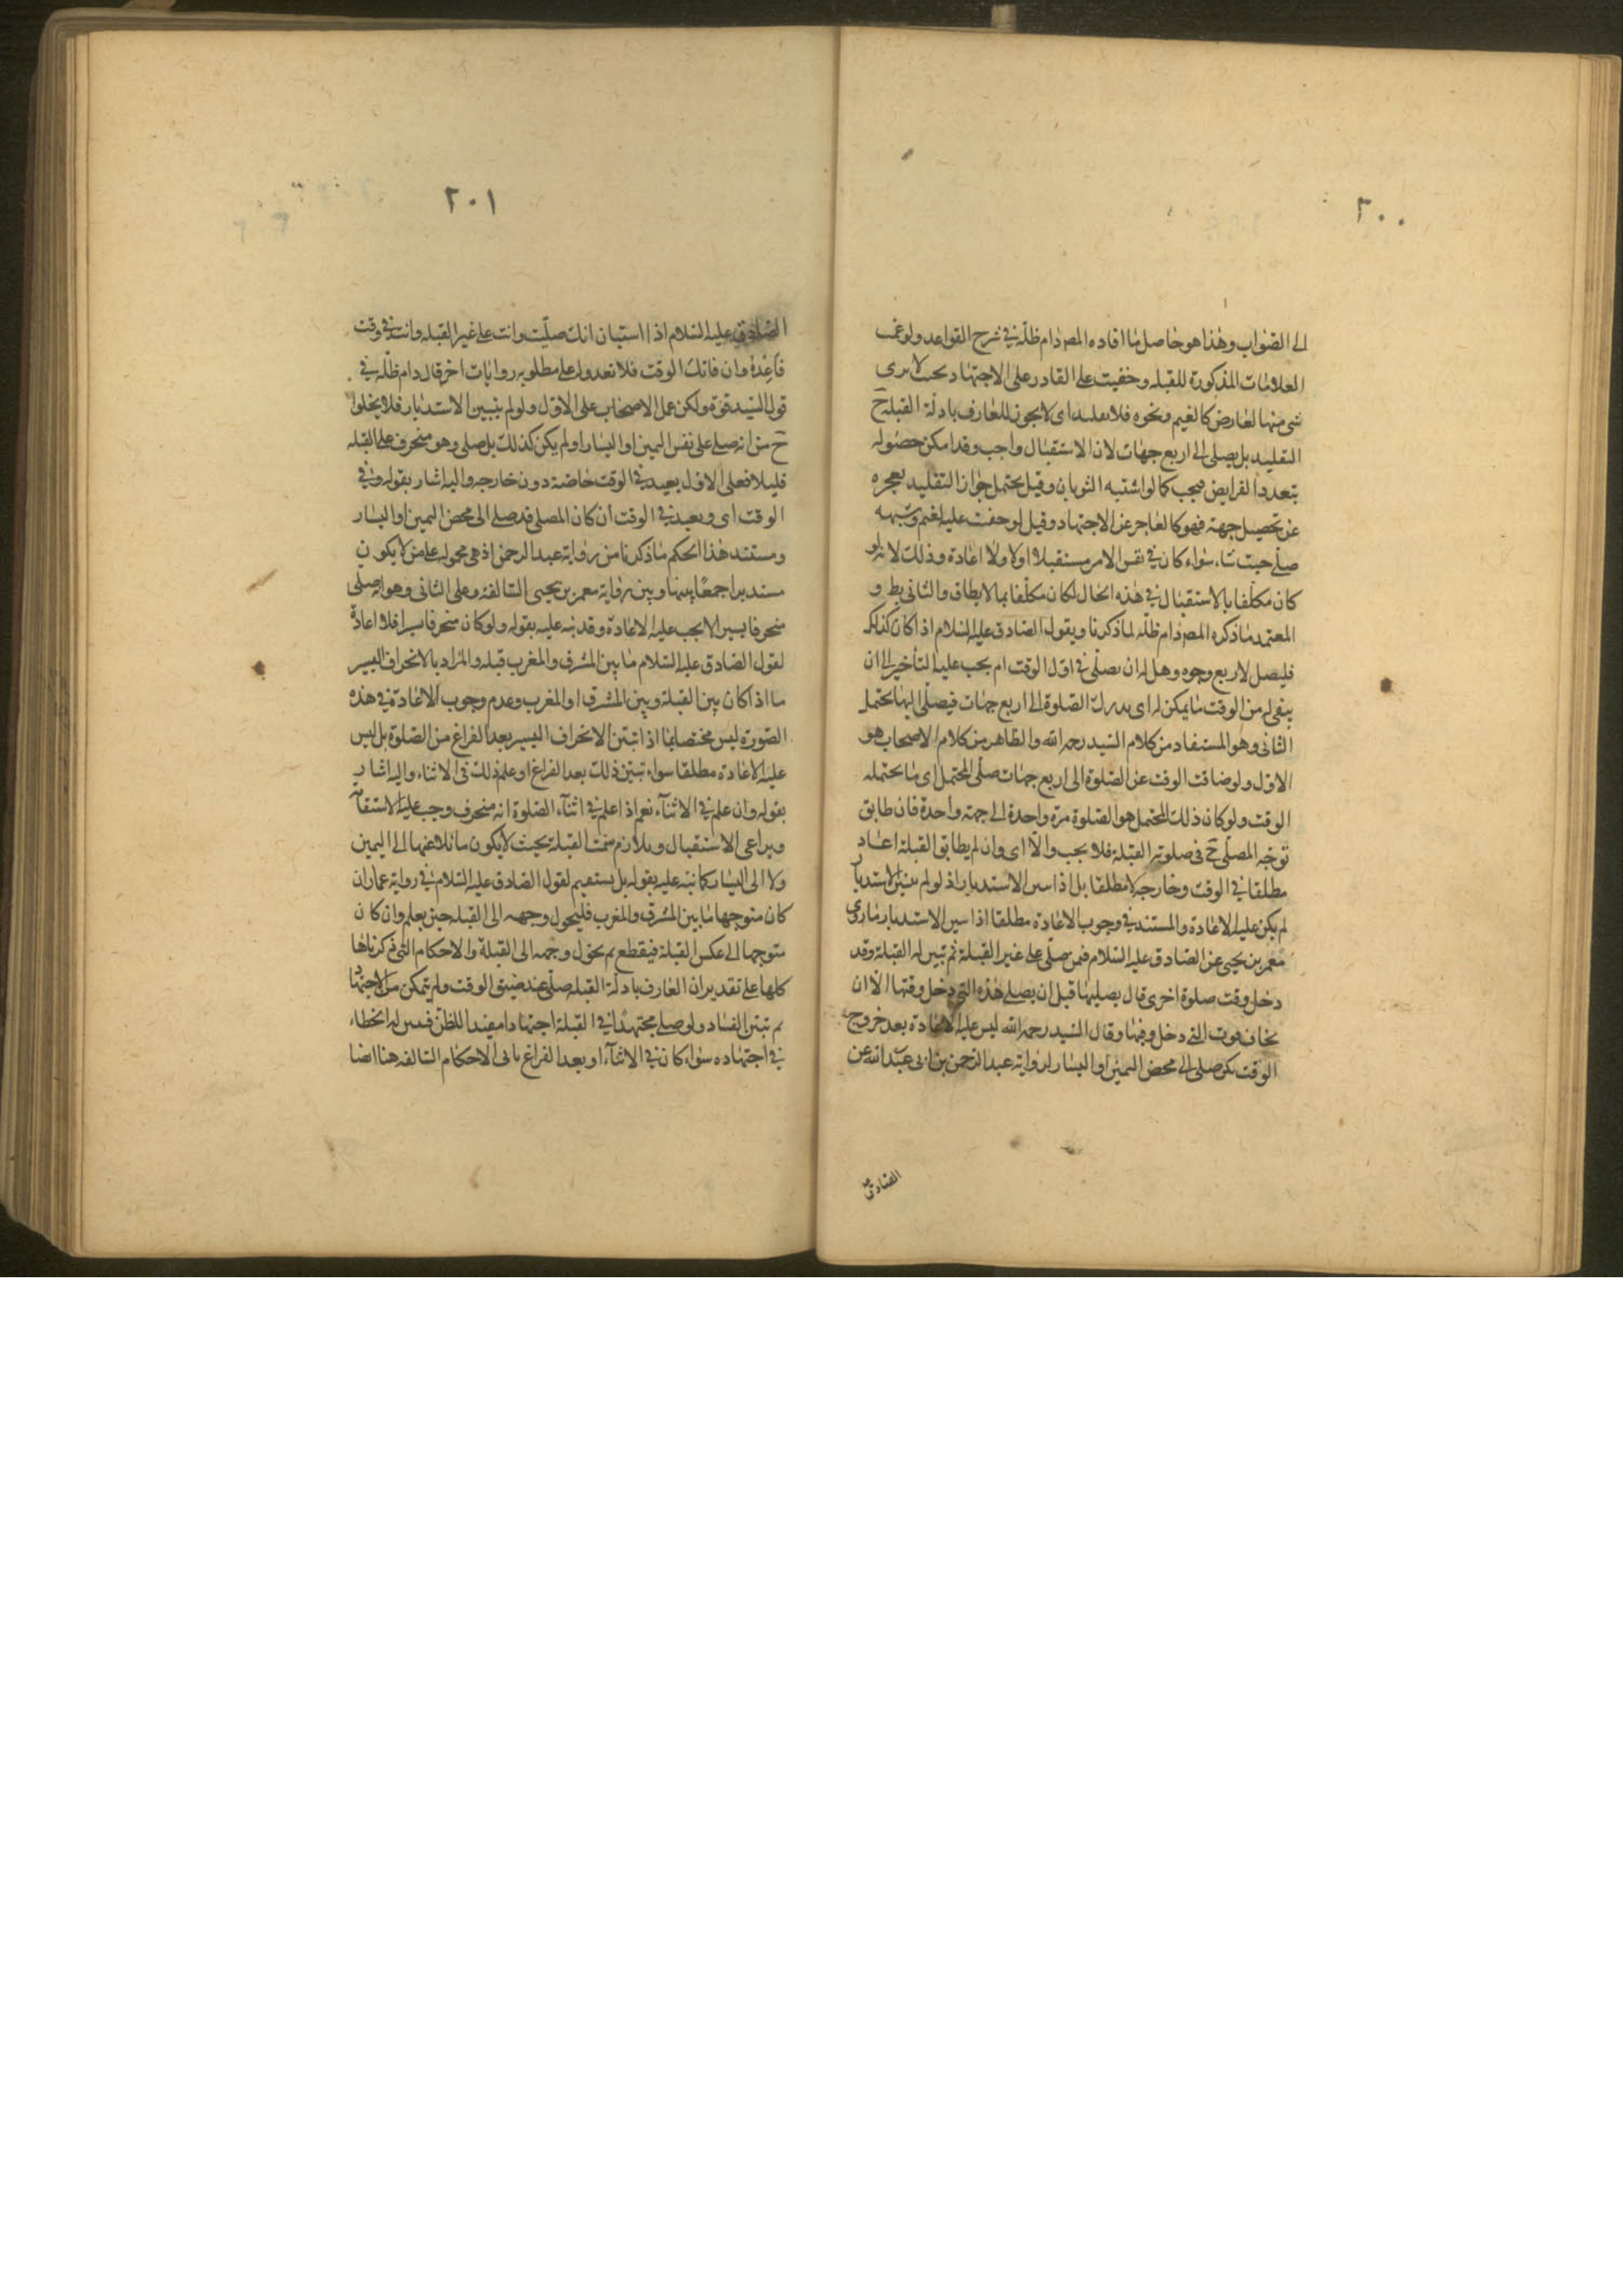 ٢٠٠
الى الصواب وهذا هو حاصل ما افاده المص دام ظله في شرح القواعد ولو غمت
العلامات المذكورة للقبله وخفيت على القادر على الاجتهاد بحث لا يرى
شئ منها لعارض كالغيم ونحوه فلا تقليد اى لا يجوز للعارف بادلة القبلة ح
التقليد بل يصلى الى اربع جهات لان الاستقبال واجب وقد امكن حصوله
بتعدد الفرايض فيجب كما لو اشتبه الثوبان وقيل يحتمل جواز التقليد لعجزه
عن تحصيل جهة فهو كالعاجز عن الاجتهاد وقيل لو خفت عليه لغيم وشبهه
صلى حيث شاء سواء كان في نفس الامر مستقبلا او لا ولا اعادة وذلك لانه لو
كان مكلفا بالاستقبال في هذه الحال لكان مكلفا بما لا يطاق والثانى بط و
المعتمد ما ذكره المص دام ظله لما ذكرنا ويقول الصادق عليه السلام اذا كان كذلك
فليصل لاربع وجوه وهل له ان يصلى في اول الوقت ام يجب عليه التأخير الى ان
يبقى له من الوقت ما يمكن له اى يدرك الصلوة الى اربع جهات فيصلى اليها يحتمل
الثانى وهو المستفاد من كلام السيد رحمه الله والظاهر من كلام الاصحاب هو
الاول ولو ضاقت الوقت عن الصلوة الى اربع جهات صلى المحتمل اى ما يحتمله
الوقت ولو كان ذلك المحتمل هو الصلوة مرة واحدة الى جهة واحدة فان طابق
توجه المصلى ح فى صلوته القبلة فلا يجب والا اى وان لم يطابق القبلة اعاد
مطلقا في الوقت وخارجه لا مطلقا بل اذا تبين الاستدبار اذ لو لم يتبين الاستدبار
لم يكن عليه الاعادة والمستند في وجوب الاعادة مطلقا اذا تبين الاستدبار ما روى
معمر بن يحيى عن الصادق عليه السلام فمن صلى على غير القبلة ثم تبين له القبلة وقد
دخل وقت صلوة اخرى قال يصليها قبل ان يصلى هذه التى دخل وقتها الا ان
يخاف فوت التى دخل وقتها وقال السيد رحمه الله ليس عليه الاعادة بعد خروج
الوقت كمن صلى الى محض اليمين او اليسار لرواية عبد الرحمن بن ابى عبد الله عن
الصادق
٢٠١
الصادق عليه السلام اذا استبان انك صليت وانت على غير القبله وانت في وقت
فاعده وان فاتك الوقت فلا تعد ودل على مطلوبه روايات اخر قال دام ظله في
قول السيد قوة ولكن عمل الاصحاب على الاول ولو لم يتبين الاستدبار فلا يخلوا
ح من انه صلى على نفس اليمين او اليسار او لم يكن كذلك بل صلى وهو منحرف على القبله
قليلا فعلى الاول يعيد في الوقت خاصة دون خارجه واليه اشار بقوله وفي
الوقت اى ويعيد في الوقت ان كان المصلى قد صلى الى محض اليمين او اليسار
ومستند هذا الحكم ما ذكرنا من رواية عبد الرحمن اذ هي محموله على من لا يكون
مستدبرا جمعا بينها وبين رواية معمر بن يحيى السالفة وعلى الثانى وهو انه صلى
منحرفا يسيرا لا يجب عليه الاعادة وقد نبه عليه بقوله ولو كان منحرفا يسيرا فلا اعادة
لقول الصادق عليه السلام ما بين المشرق والمغرب قبله والمراد بالانحراف اليسير
ما اذا كان بين القبلة وبين المشرق او المغرب وعدم وجوب الاعادة في هذه
الصورة ليس مختصا بما اذا تبين الانحراف اليسير بعد الفراغ من الصلوة بل ليس
عليه الاعادة مطلقا سواء تبين ذلك بعد الفراغ او علم ذلك فى الاثناء واليه اشار
بقوله وان علم في الاثناء نعم اذا علم في اثناء الصلوة انه منحرف وجب عليه الاستقامة
ويراعى الاستقبال ويلازم سمت القبلة بحيث لا يكون مائلا عنها الى اليمين
ولا الى اليسار كما نبه عليه بقوله بل يستقيم لقول الصادق عليه السلام في رواية عمار ان
كان متوجها ما بين المشرق والمغرب فليحول وجهه الى القبله حين يعلم وان كان
متوجها الى عكس القبلة فيقطع ثم يحول وجهه الى القبلة والاحكام التى ذكرناها
كلها على تقدير ان العارف بادلة القبله صلى عند ضيق الوقت ولم يتمكن من الاجتهاد
ثم تبين الفساد ولو صلى مجتهدا في القبلة اجتهادا مفيدا للظن فتبين له الخطاء
في اجتهاده سواء كان في الاثناء او بعد الفراغ ياتى الاحكام السالفه هنا ايضا